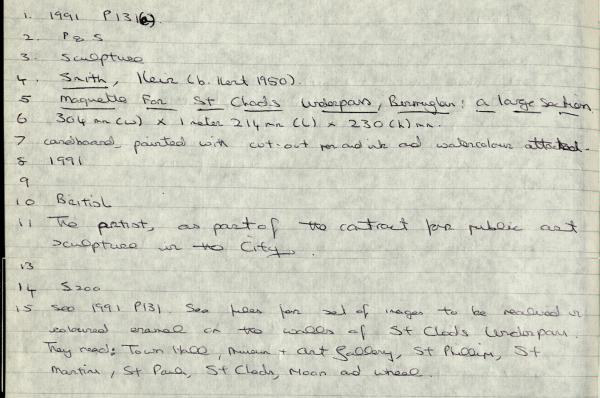 1. 1991 P131(a).
2. P & S
3. Sculpture
4. Smith, Keir (b. Kent 1950).
5 Maquette For St Chads Underpass, Birmingham: a large section.
6 304 mm (w) x 1 meter 214 mm (L) x 230 (h) mm.
7 cardboard, painted with cut-out pen and ink and watercolour attached.
8 1991
9
10 British
11 The artist, as part of the contract for public art
sculpture in the City.
13
14 5200
15 See 1991 P131. See files for set of images to be realised in
coloured enamel on the walls of St Chads Underpass.
They read: Town Hall, Museum + Art Gallery, St Phillips, St
Martins, St Pauls, St Chads, Moon and wheel.